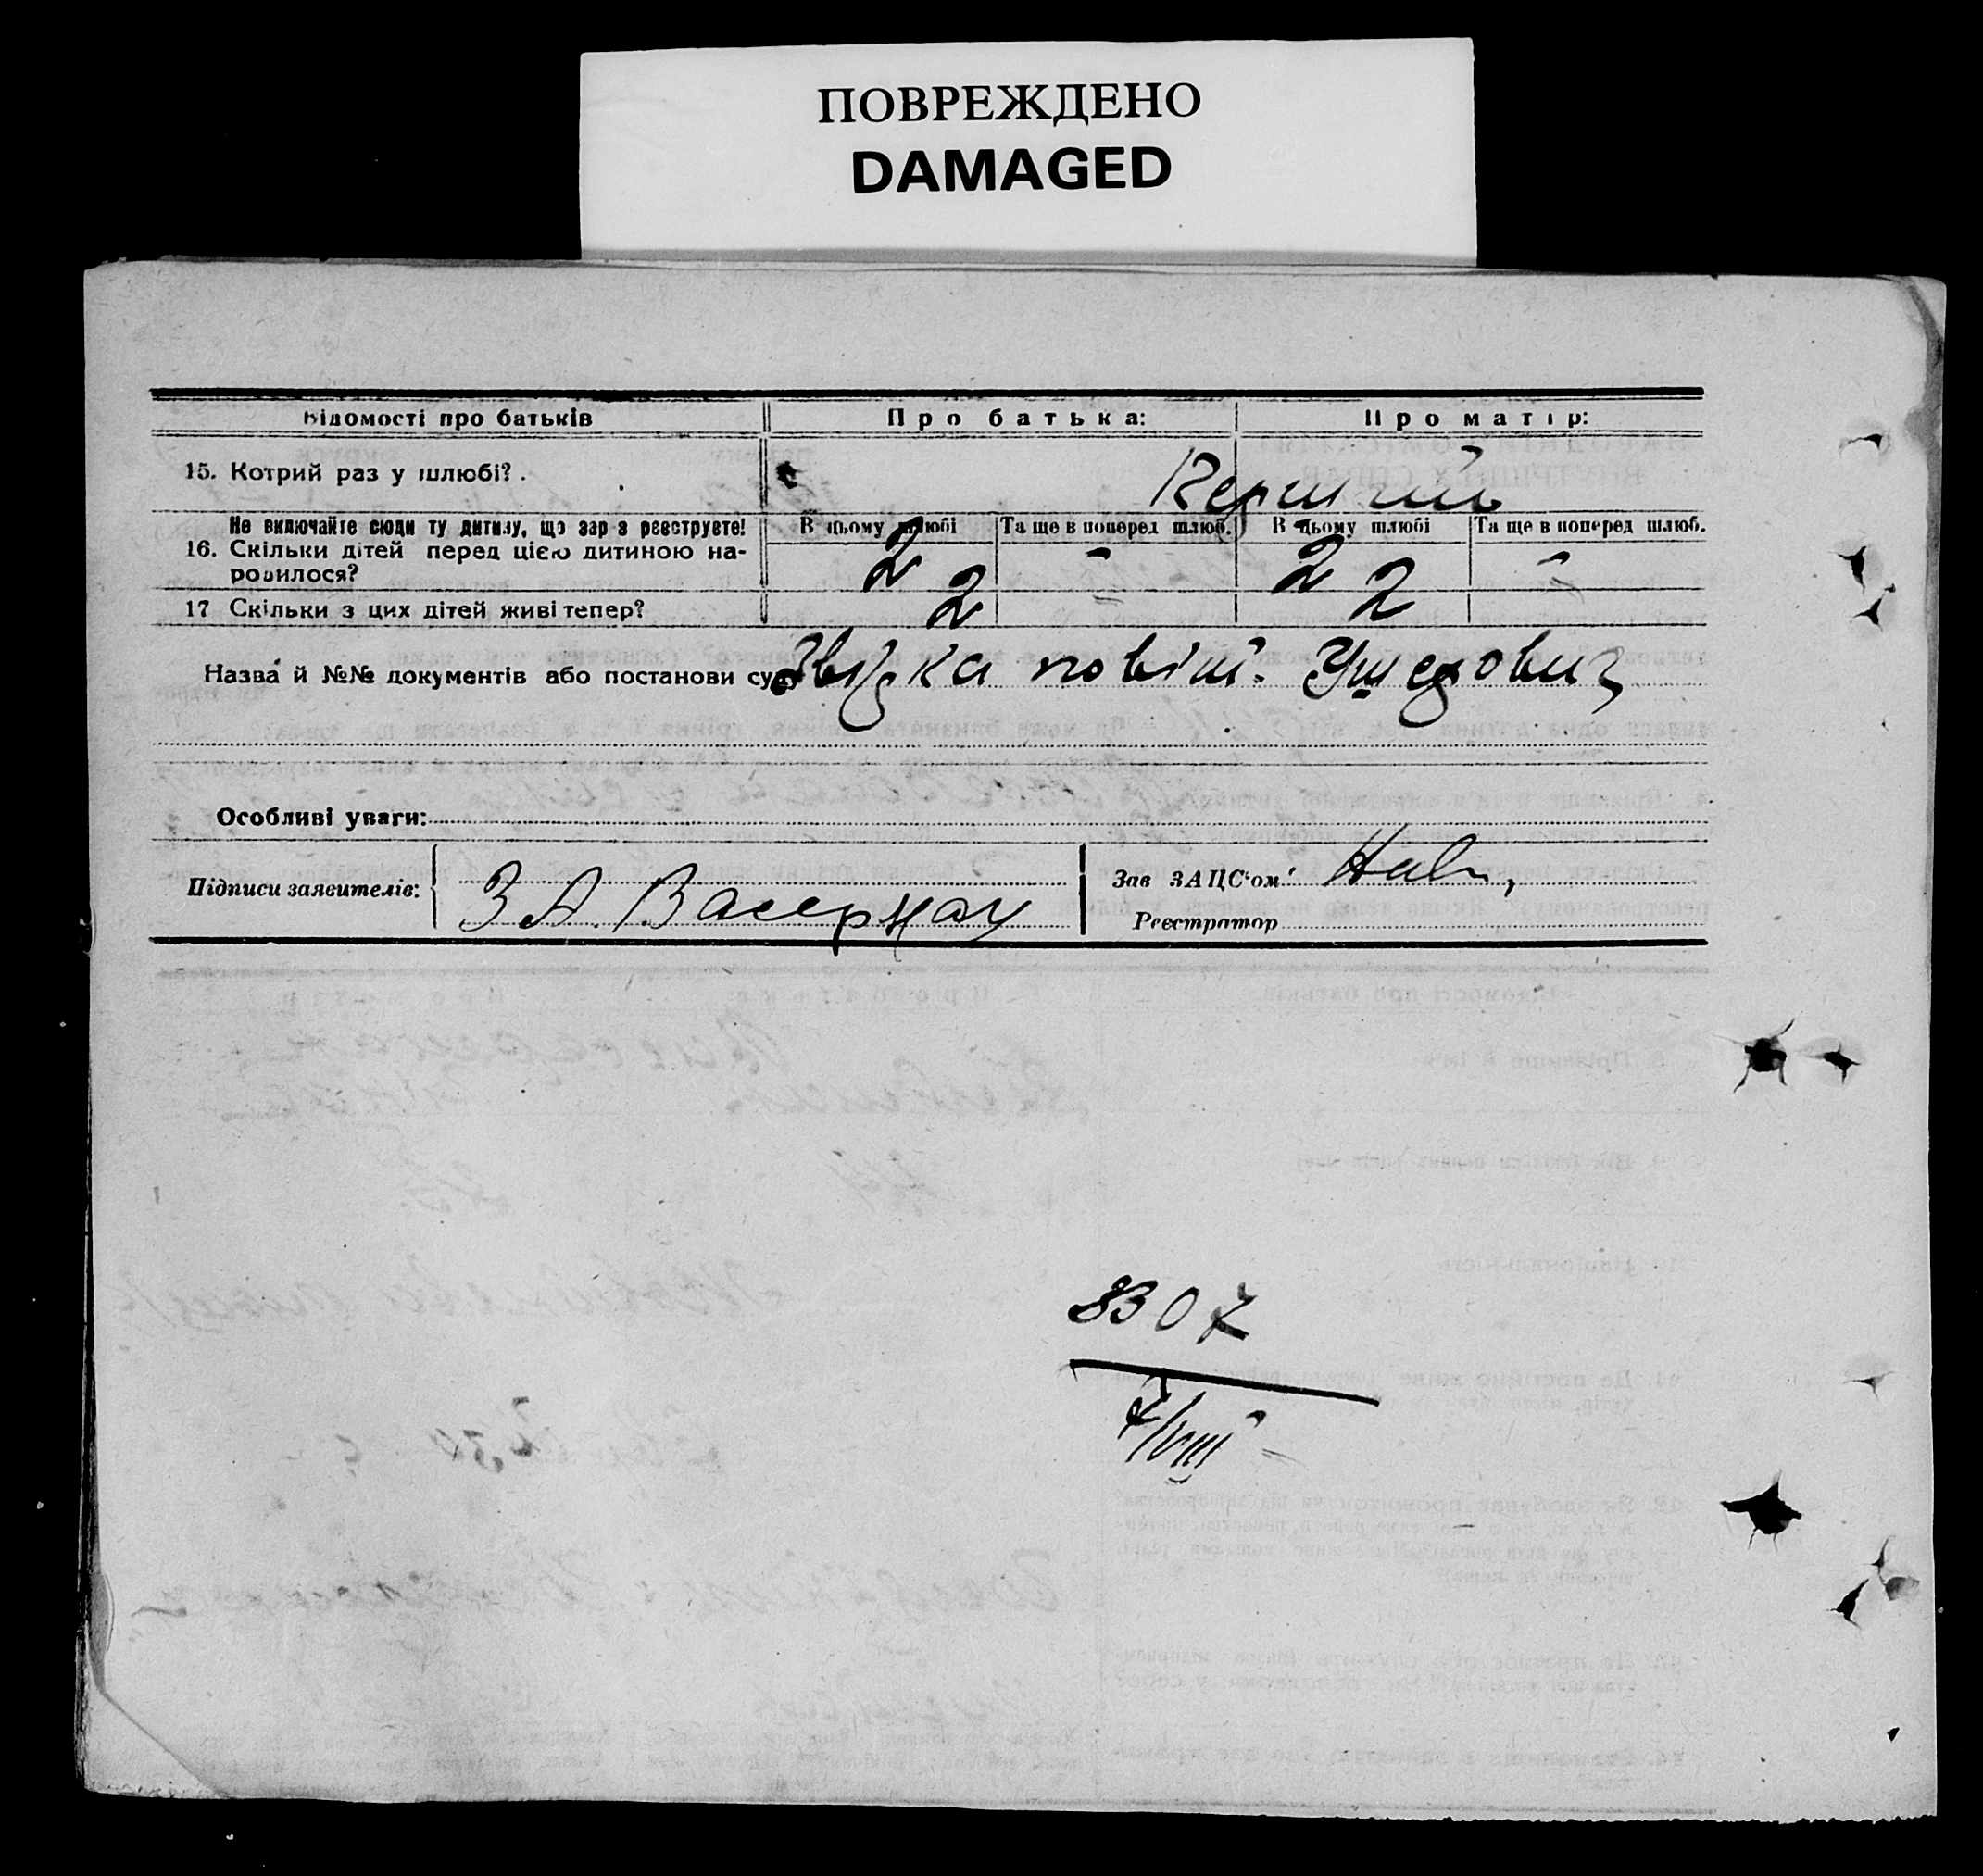 ПОВРЕЖДЕНО
DAMAGED
Відомості про батьків Про батька: Про матір:
15. Котрий раз у шлюбі?
Не включайте сюди ту дитину, що зараз реєструєте! В цьому шлюбі Та ще в поперед шлюб. В цьому шлюбі Та ще в поперед шлюб.
16. Скільки дітей перед цією дитиною на-
родилося? 2 " 2 "
17 Скільки з цих дітей живі тепер? 2 2
Назва й №№ документів або постанови суду
Особливі уваги:
Підписи заявителів: ЗА Васерман Зав ЗАЦС'ом
Реєстратор
8307
7/VIII